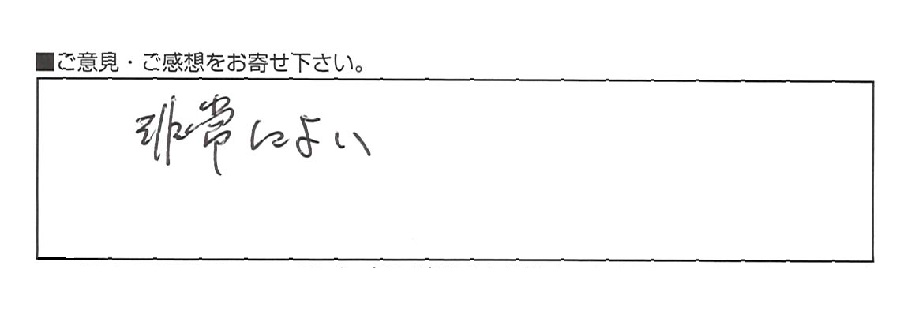 ■ご意見・ご感想をお寄せ下さい。
非常によい